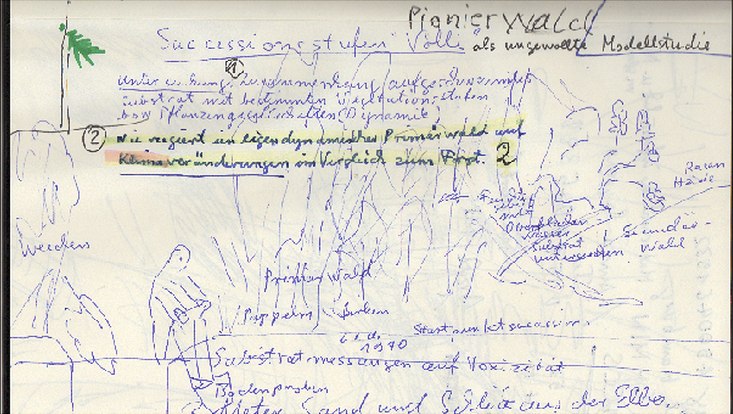 Pionierwald
Successionsstufen Volli als ungewollte Modellstudie
1
Untersuchung, Zusammenhang aufgeschwemmtes
Substrat mit bestimmten Vegetationsstufen
bzw Pflanzengesellschaften Dynamik
2 wie reagiert ein eigendynamischer Primärwald auf
Klimaveränderungen im Vergleich zum Forst. 2
Raran
Weiden
mit
Substrat
untersuchen
Secundär-
Wald
Primärwald
Pappeln Birken
1970
Startpunkt
Substratmessungen auf Toxizität
Bodenproben
Meter Sand und Schlick aus der Elbe